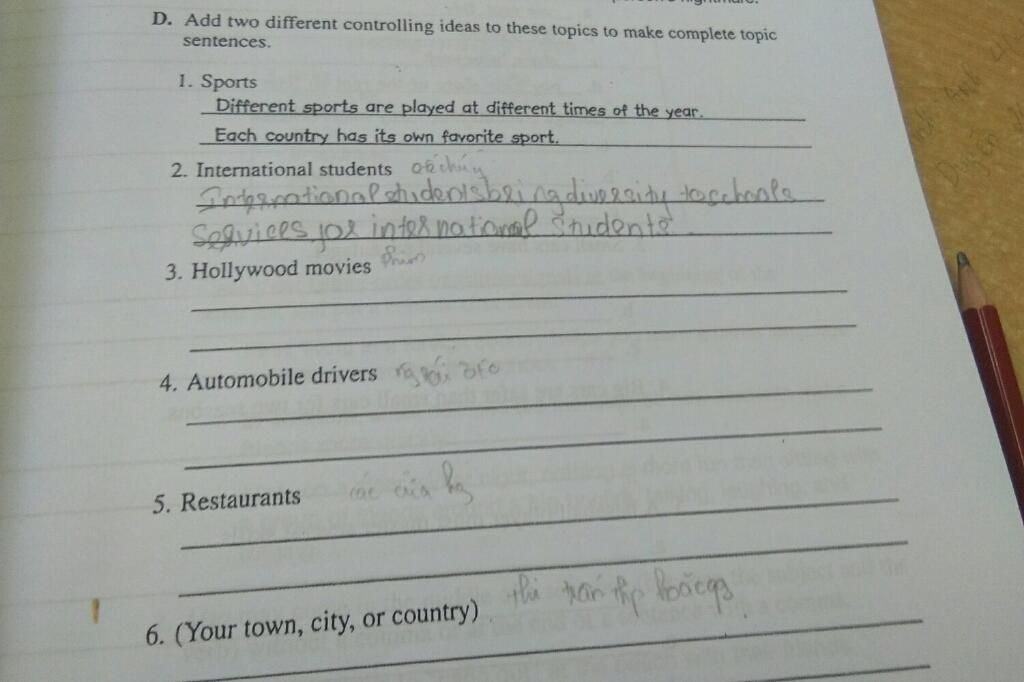 D. Add two different controlling ideas to these topics to make complete topic
sentences.
1. Sports
Different sports are played at different times of the year.
Each country has its own favorite sport.
2. International students
International students bring diversity to schools
Services for international students
3. Hollywood movies phim
4. Automobile drivers
5. Restaurants các cửa hg
6. (Your town, city, or country)